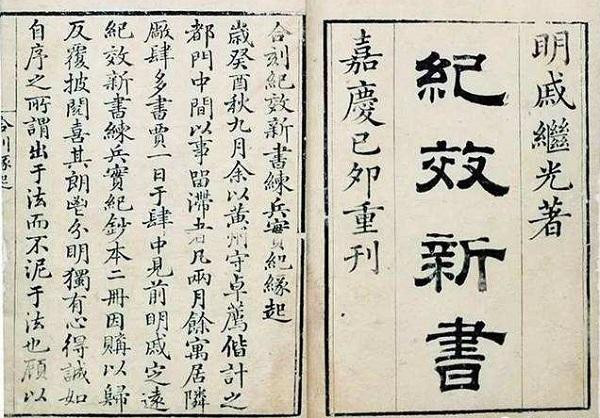 明戚繼光著
紀效新書
嘉慶己卯重刊
合刻紀效新書練兵實紀緣起
歲癸酉秋九月余以黃州守卓薦偕計之
都門中間以事畱滯者凡兩月餘寓居隣
厰肆多書賈一日于肆中見前明戚定遠
紀效新書練兵實紀鈔本二冊因購以歸
反覆披閱喜其朗鬯分明獨有心得誠如
自序之所謂出于法而不泥于法也顧以